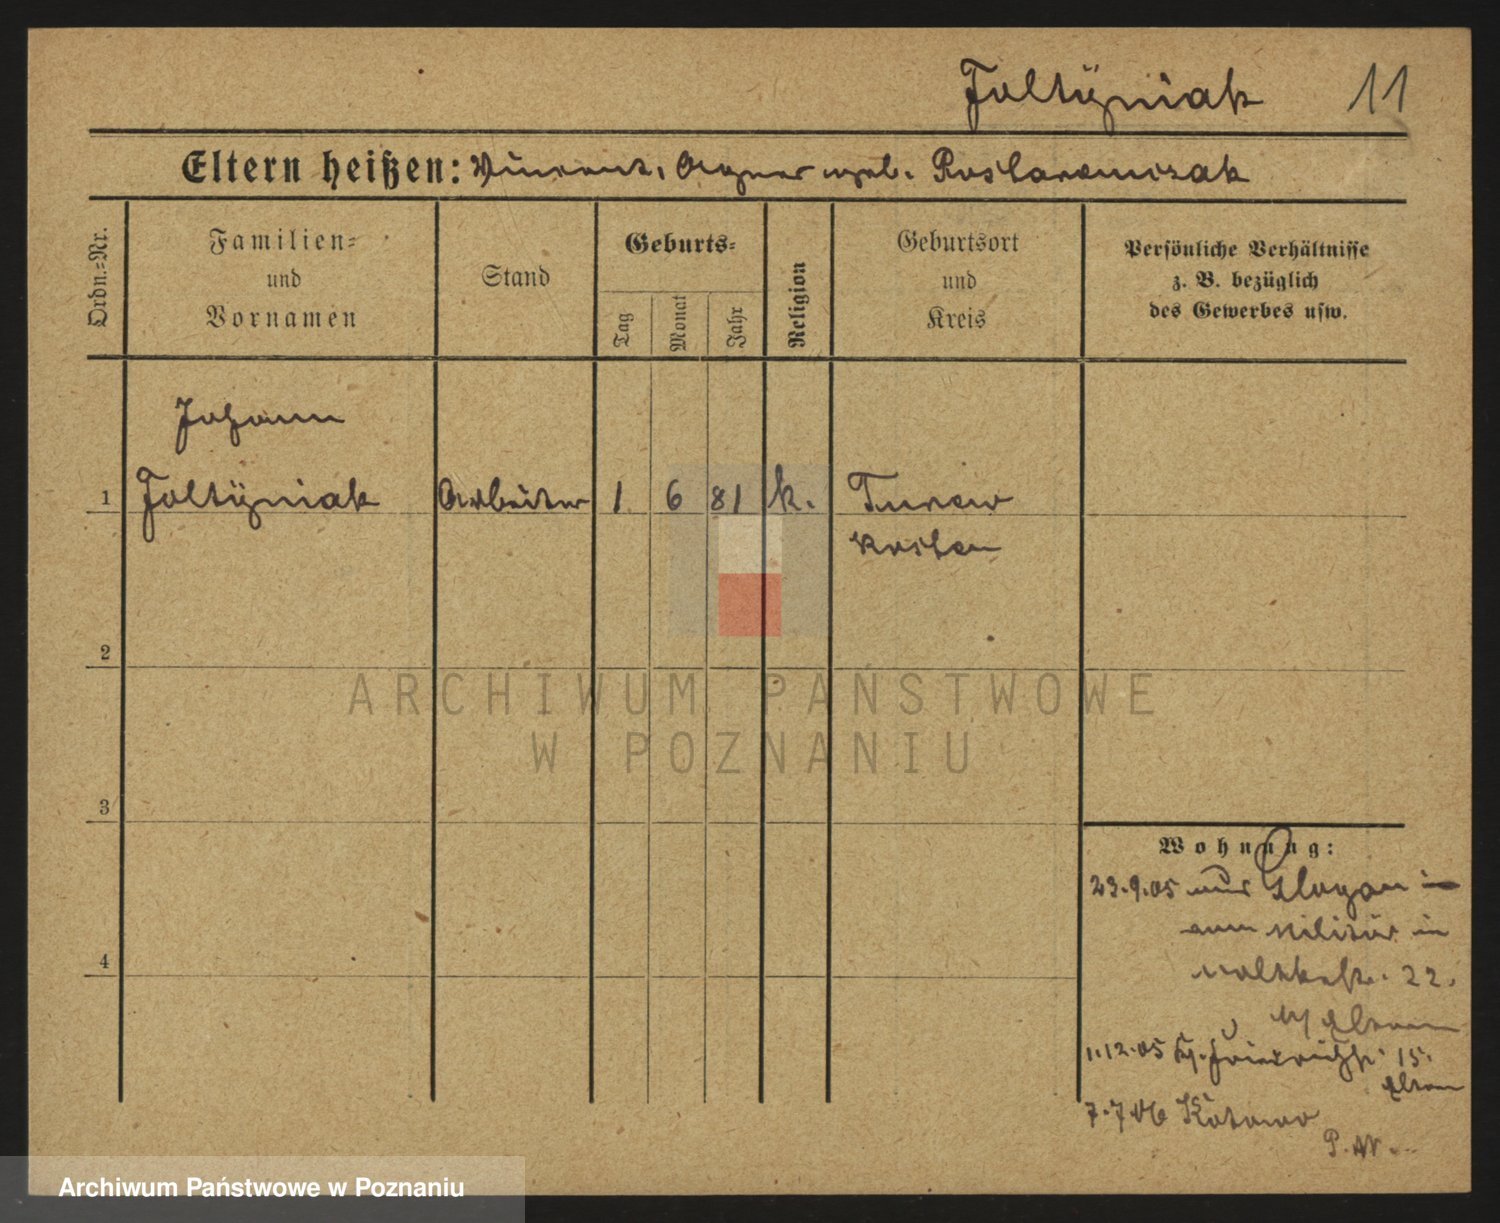 Foltÿniak 11
Eltern heißen: Vincent, Agnes geb.
Ordn.-Nr.
Familien-
und
Vornamen
Stand
Geburts-
Tag
Monat
Jahr
Religion
Geburtsort
und
Kreis
Persönliche Verhältnisse
z. B. bezüglich
des Gewerbes usw.
Johann
1 Foltÿniak Arbeiter 1 6 81 k. Turew
Kosten
2
ARCHIWUM PAŃSTWOWE
W POZNANIU
3
4
Wohnung:
23.9.05 aus Glogau
vom Militär in
Moltkestr. 22.
b/ Eltern
1.12.05 Friedrichstr. 15.
Eltern
7.7.06 Kotowo
Archiwum Państwowe w Poznaniu